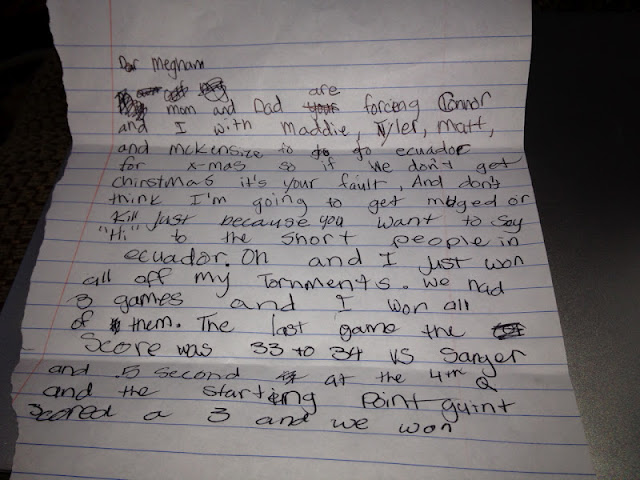 Dear Meghan
are
mom and Dad forcing Connor
and I with maddie, Tyler, matt,
and mckensize to go to ecuador
for x-mas so if we don't get
chirstmas it's your fault, And don't
think I'm going to get muged or
Kill just because you want to say
"Hi" to the short people in
ecuador. Oh and I just won
all off my Tornments. We had
3 games and I won all
of them. The last game the
Score was 33 to 34 VS Sanger
and .5 second at the 4th Q
and the starting point guint
Scored a 3 and we won